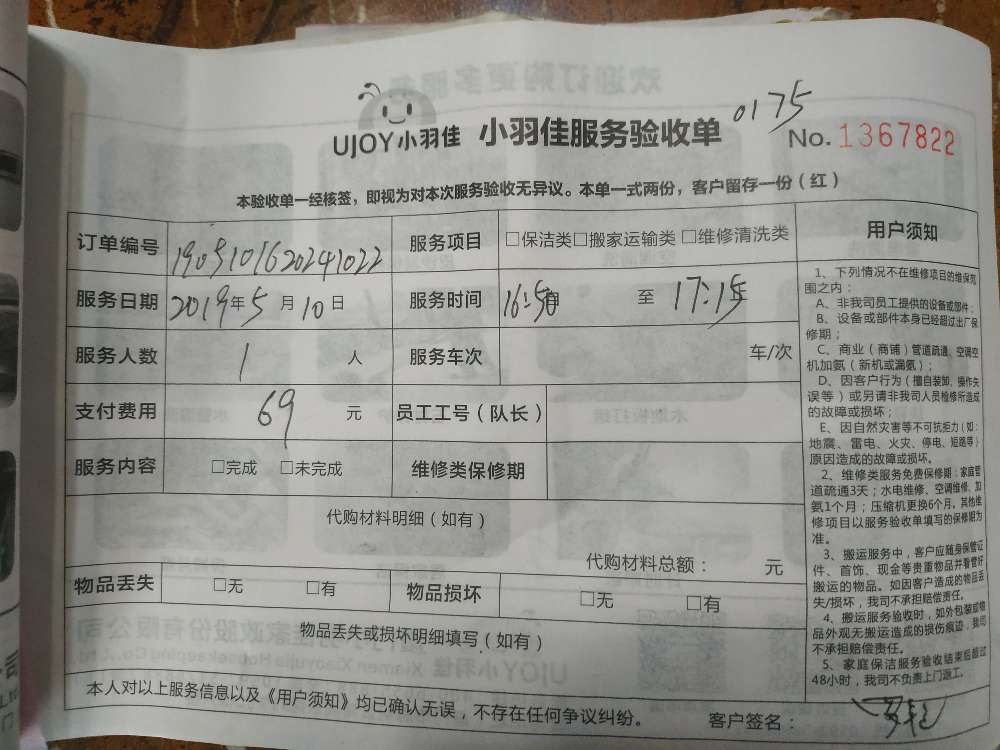 0175
UJOY小羽佳 小羽佳服务验收单 No. 1367822
本验收单一经核签，即视为对本次服务验收无异议。本单一式两份，客户留存一份（红）
订单编号 1905101620241022 服务项目 □保洁类□搬家运输类 □维修清洗类
服务日期 2019年5月10日 服务时间 16:50 至 17:15
服务人数 1 人 服务车次 车/次
支付费用 69 元 员工工号（队长）
服务内容 □完成 □未完成 维修类保修期
代购材料明细（如有）
代购材料总额： 元
物品丢失 □无 □有 物品损坏 □无 □有
物品丢失或损坏明细填写（如有）
本人对以上服务信息以及《用户须知》均已确认无误，不存在任何争议纠纷。 客户签名：
用户须知
1、下列情况不在维修项目的维保范
围之内：
A、非我司员工提供的设备或部件；
B、设备或部件本身已经超过出厂保
修期；
C、商业（商铺）管道疏通、空调空
机加氨（新机或漏氨）；
D、因客户行为（擅自装卸、操作失
误等）或另请非我司人员检修所造成
的故障或损坏；
E、因自然灾害等不可抗拒力（如：
地震、雷电、火灾、停电、短路等）
原因造成的故障或损坏。
2、维修类服务免费保修期：家庭管
道疏通3天；水电维修、空调维修、加
氨1个月；压缩机更换6个月。其他维
修项目以服务验收单填写的保修期为
准。
3、搬运服务中，客户应随身保管证
件、首饰、现金等贵重物品并看管好
搬运的物品。如因客户造成的物品丢
失/损坏，我司不承担赔偿责任。
4、搬运服务验收时，如外包装或物
品外观无搬运造成的损伤痕迹，我司
不承担赔偿责任。
5、家庭保洁服务验收结束后超过
48小时，我司不负责上门返工。